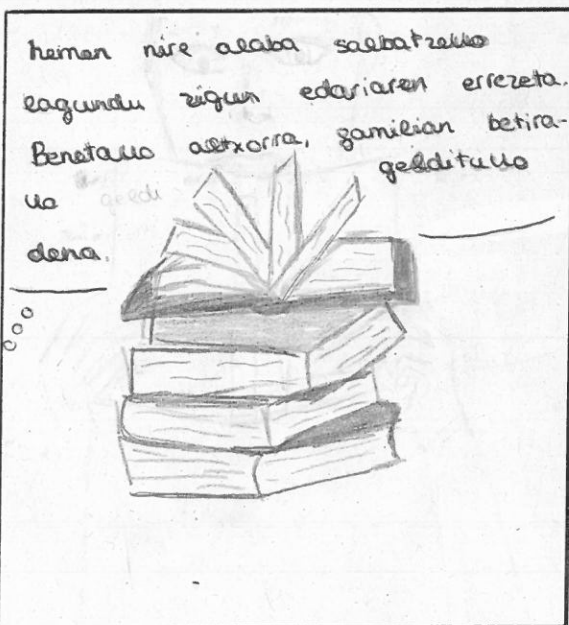 hemen nire alaba salbatzeko
lagundu zigun edariaren errezeta.
Benetako altxorra, familian betira-
ko geldituko
dena.